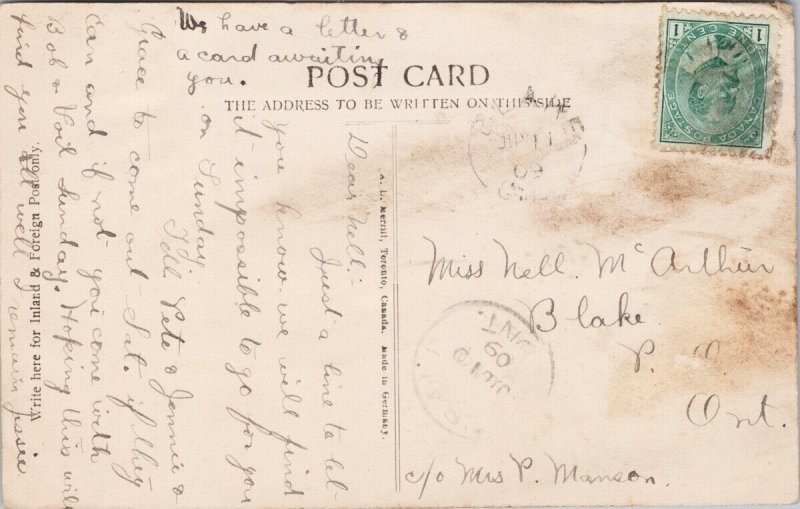 We have a letter &
a card awaiting
you.
POST CARD
THE ADDRESS TO BE WRITTEN ON THIS SIDE
Write here for Inland & Foreign Post only.
A. L. Merrill, Toronto, Canada. Made in Germany.
Dear Nell:-
Just a line to let
you know we will find
it impossible to go for you
on Sunday.
Tell Pete & Jennie &
Grace to come out Sat. if they
can and if not you come with
Bob & Sunday. Hoping this will
find you all well I remain Jessie
CANADA POSTAGE
ONE CENT
1 1
BLAKE
11
09
ONT.
09
ONT.
Miss Nell. McArthur
Blake
P. O.
Ont.
c/o Mrs P. Manson.